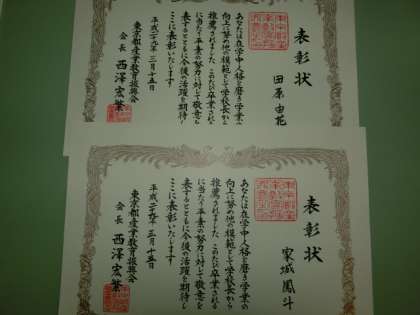 表彰状
田原由花
あなたは在学中人格を磨き学業の
向上に努め他の模範として学校長から
推薦されました このたび卒業される
に当たり平素の努力に対して敬意を
表するとともに今後の活躍を期待し
ここに表彰いたします
平成二十九年三月十五日
東京都産業教育振興会
会長 西澤宏繁
表彰状
家城鳳斗
あなたは在学中人格を磨き学業の
向上に努め他の模範として学校長から
推薦されました このたび卒業される
に当たり平素の努力に対して敬意を
表するとともに今後の活躍を期待し
ここに表彰いたします
平成二十九年三月十五日
東京都産業教育振興会
会長 西澤宏繁